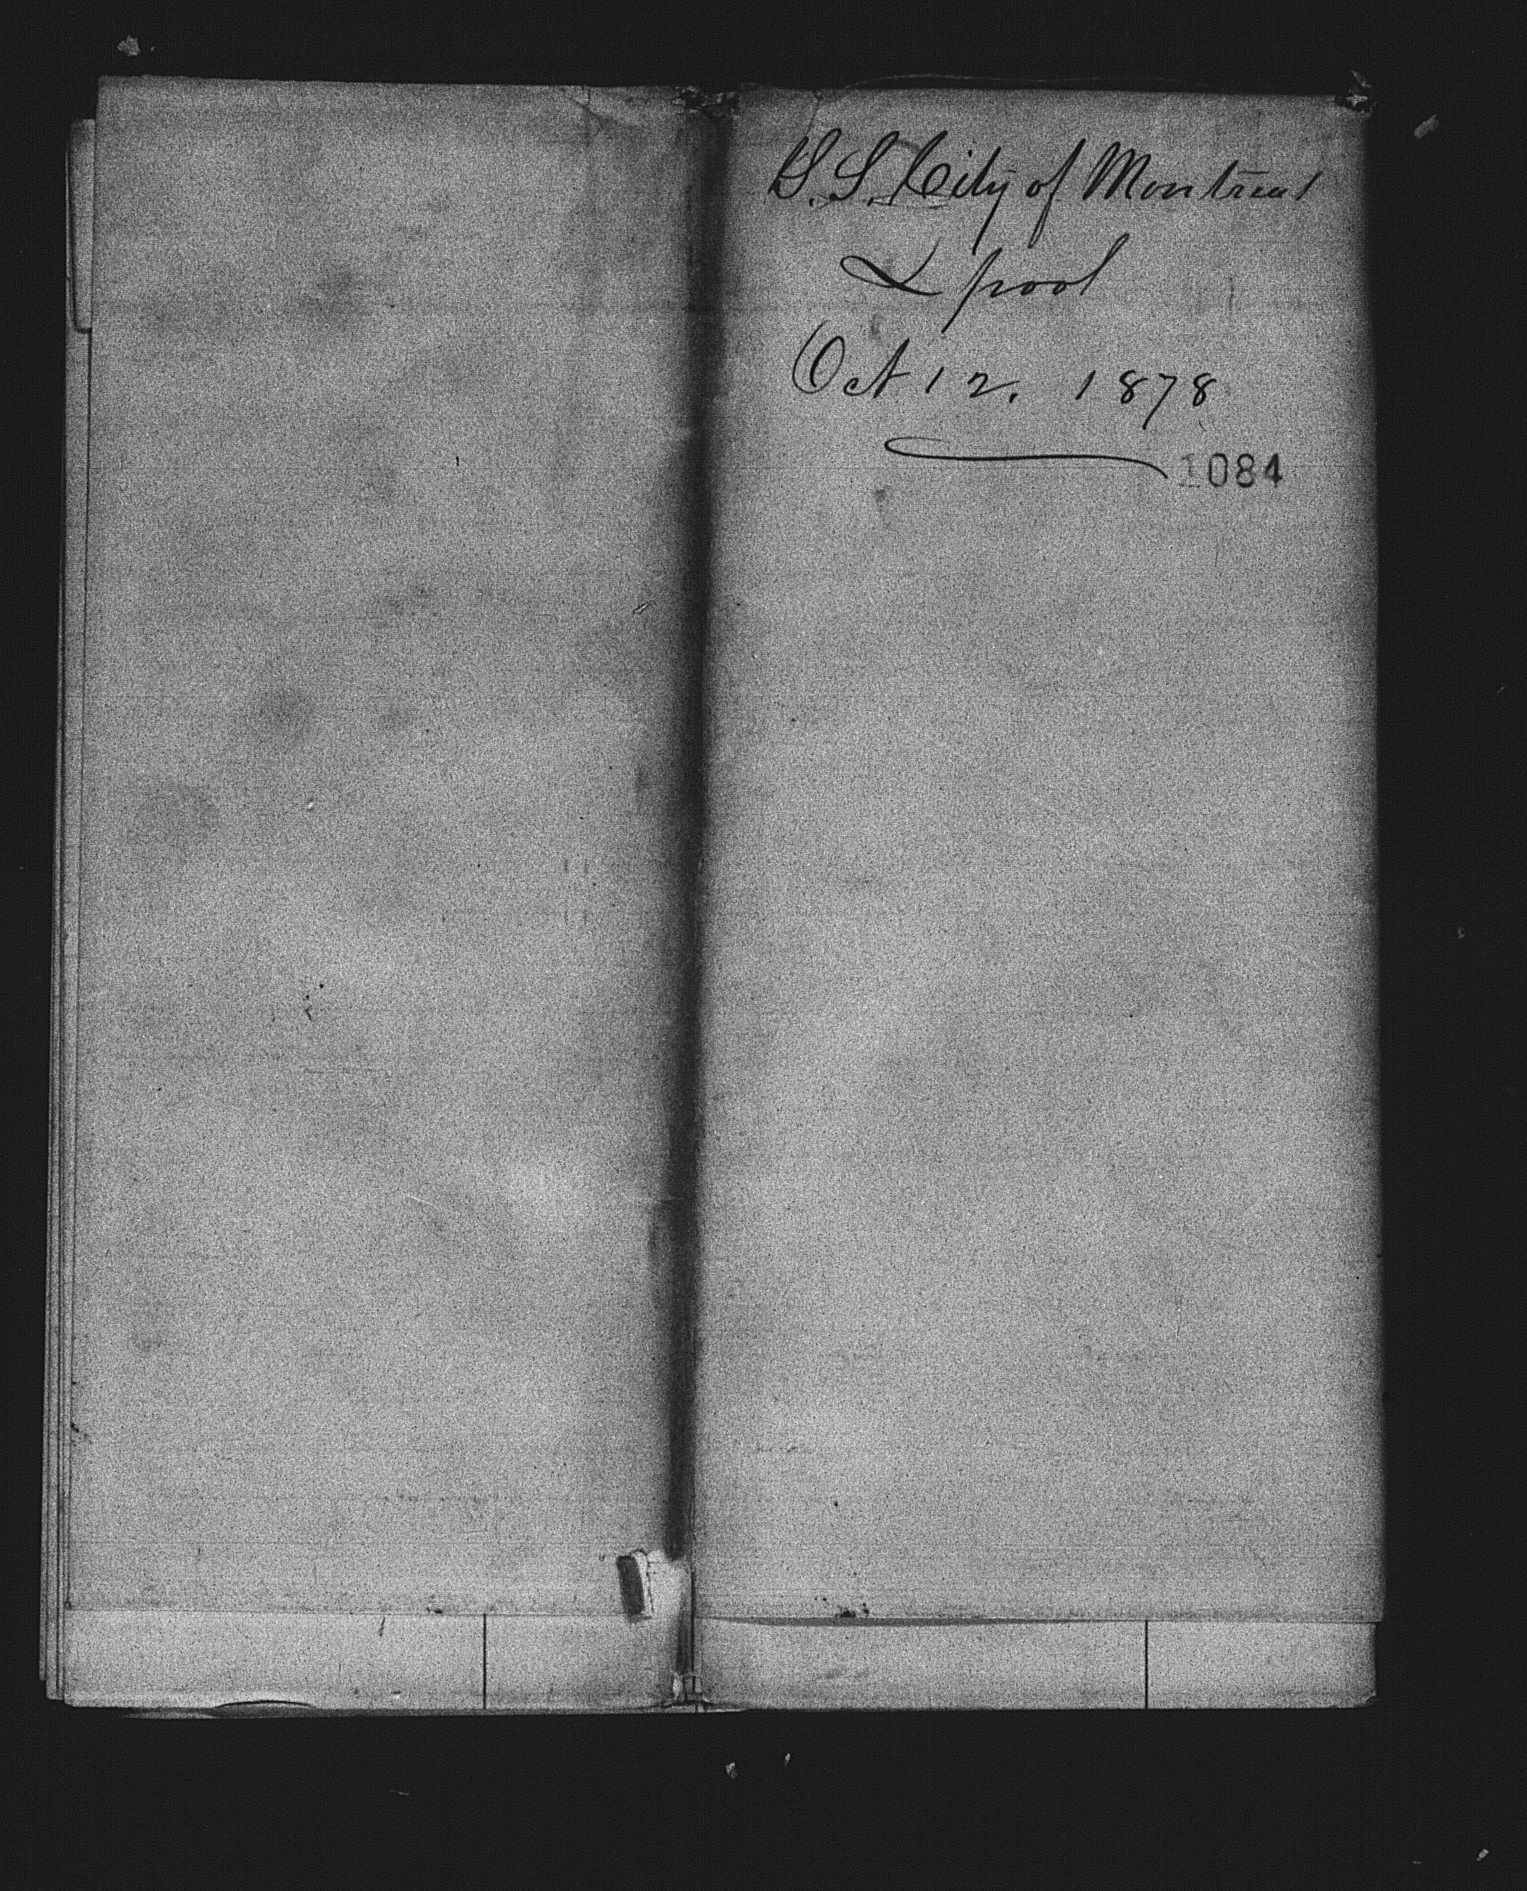 S.S. City of Montreal
L pool
Oct 12. 1878
1084